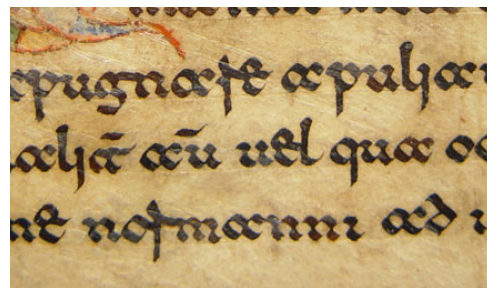 xpugnare apulia
aliā aū uel qua oc
ne normanni ad